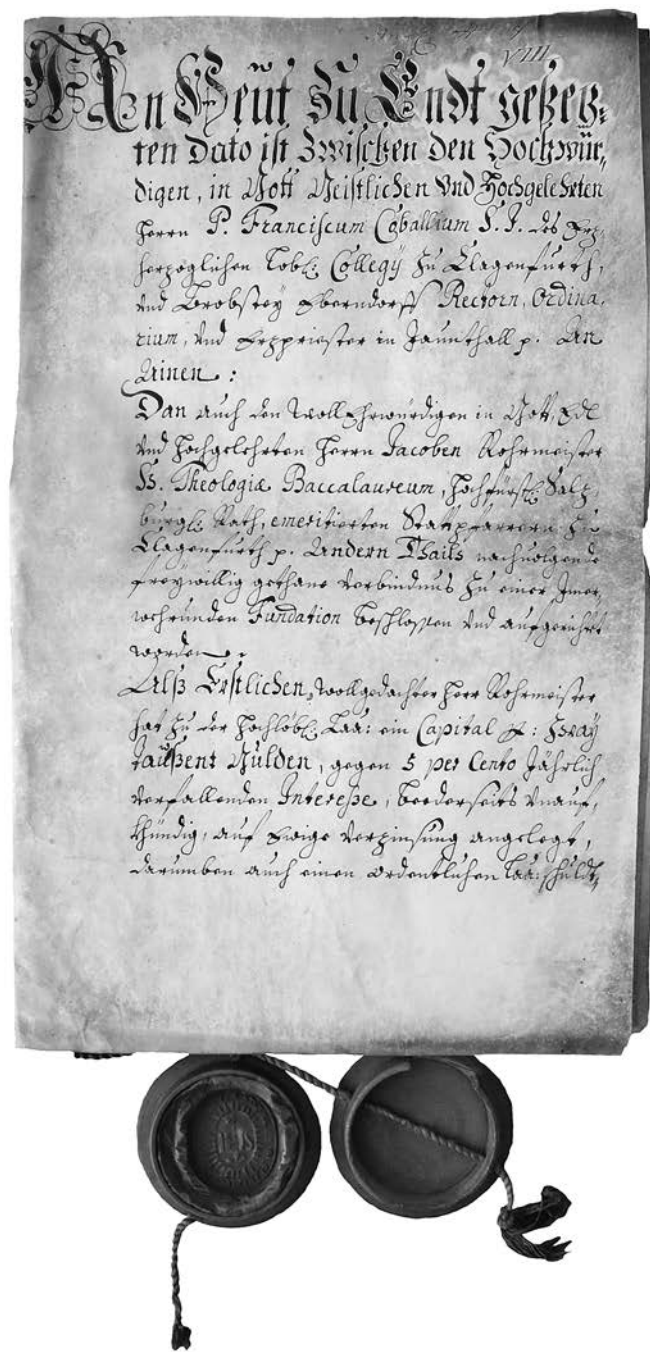 VIII.
An Heüt Zu Endt gesez=
ten Dato ist Zwischen den Hochwür=
digen, in Gott Geistlichen Vnd Hochgelehrten
Herrn P. Franciscum Caballium S. J. des Erz=
herzoglichen Lobl: Collegÿ Zu Clagenfurth,
Vnd Brobsteÿ Eberndorff Rectorn, Ordina=
rium, Vnd Erzpriester in Jaunthall p. An
Ainen:
Dan auch den Wollehrwürdigen in Gott, Edl
Vnd Hochgelehrten Herrn Jacoben Rohrmeister
SS. Theologiæ Baccalaureum, Hochfürstl: Salz=
burgl: Rath, emeritierten Stattpfarrern Zu
Clagenfurth p. Andern Thails nachuolgende
freÿwillig gethane Verbindnus Zu einer Jmer=
wehrunden Fundation beschlossen Vnd aufgericht
worden.
Alß Erstlichen, wollgedachter Herr Rohrmeister
hat Zu der Hochlöbl: Laa: ein Capital p: Zwaÿ
Taußent Gulden, gegen 5 per Cento Jährlich
Verfallenden Interesse, beederseits Vnauf=
khündig, auf Ewige Verzinsung angelegt,
darumben auch einen ordentlichen Laa: schuldt=
IHS